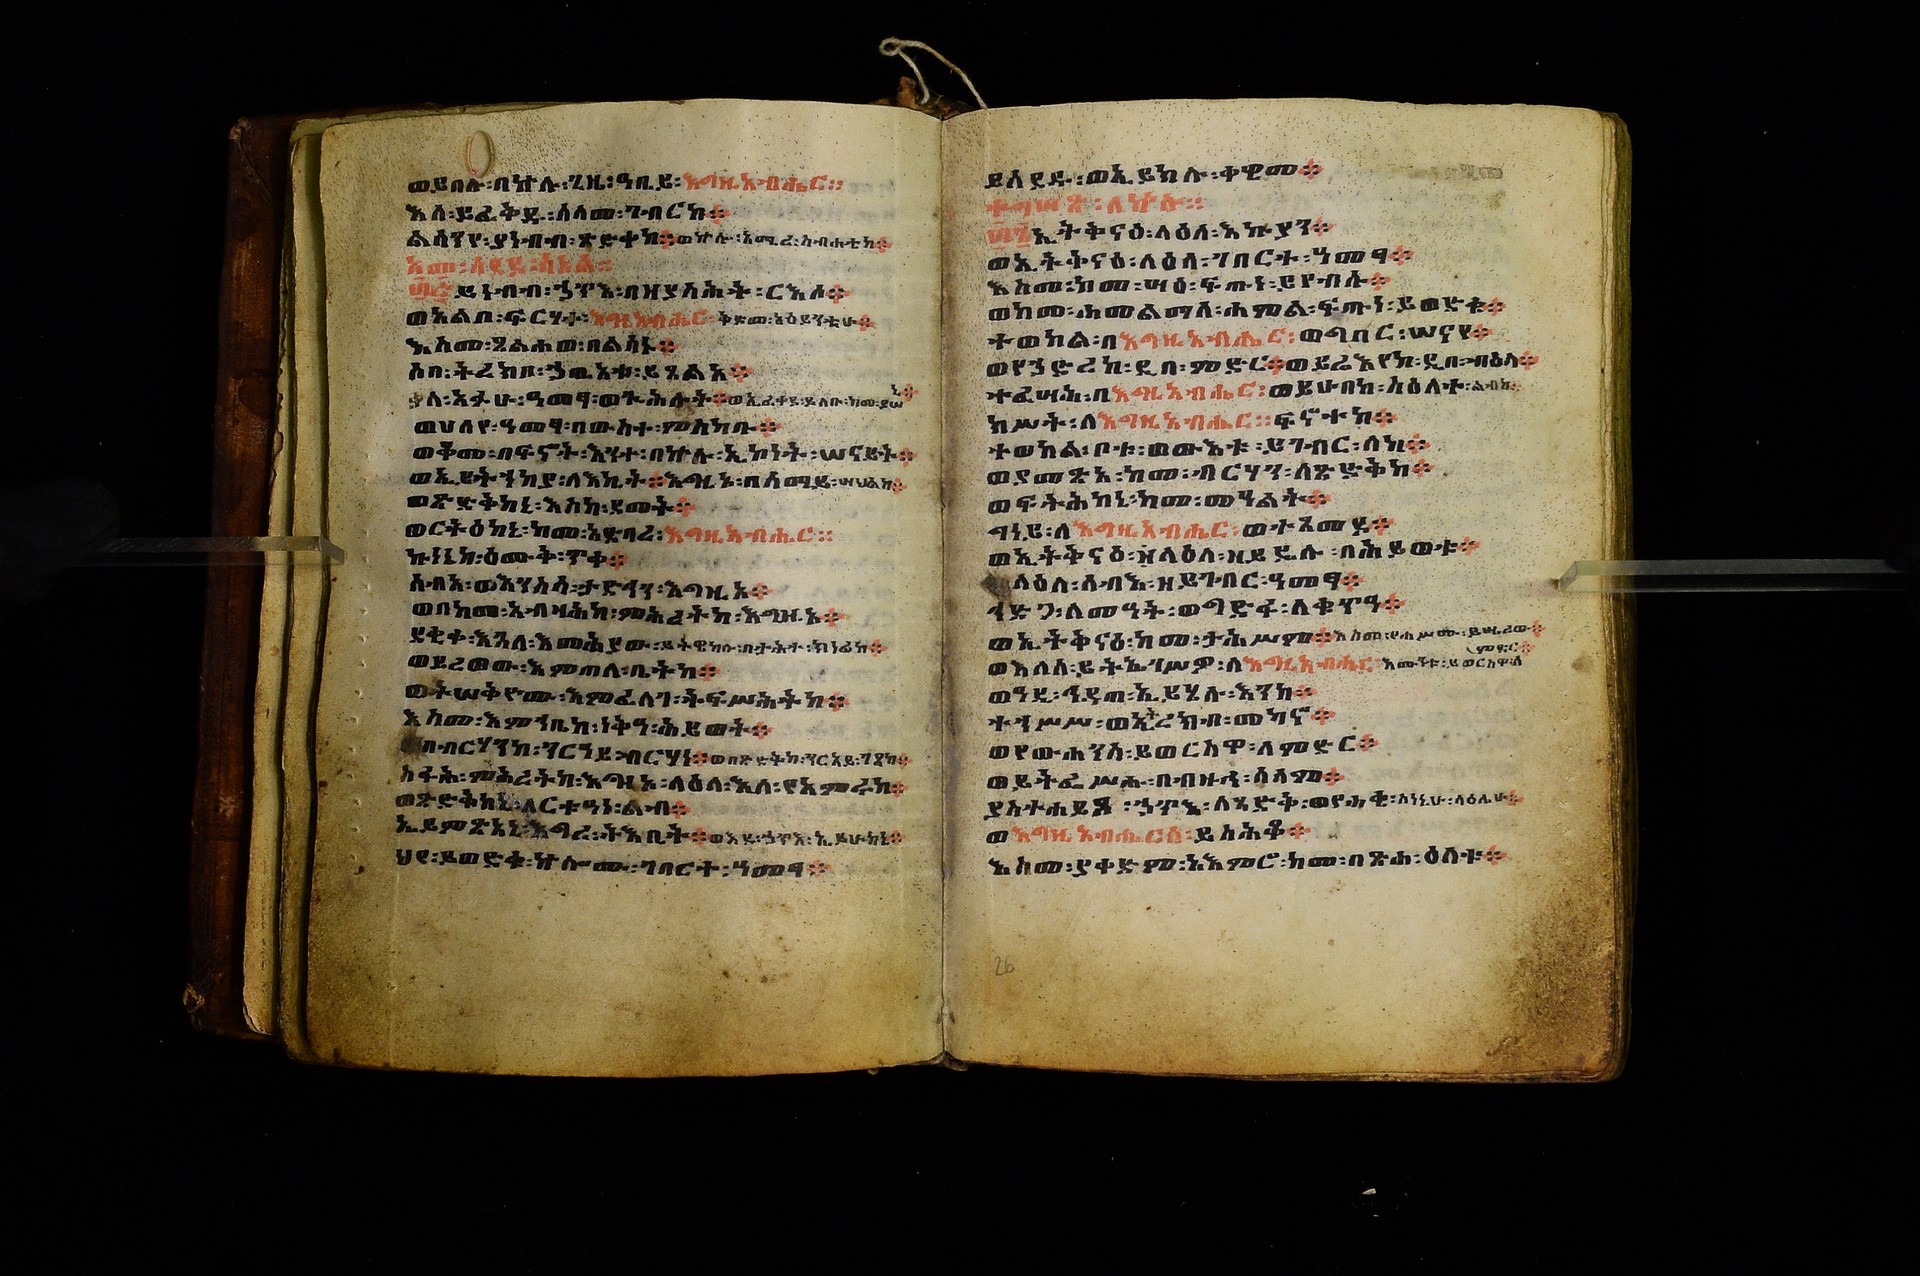 ወይበሉ፡በኵሉ፡ጊዜ፡ዓቢይ፡እግዚአብሔር።
እለ፡ይፈቅዱ፡ሰላመ፡ገብርከ።
ልሳንየ፡ያነብብ፡ጽድቀከ።ወኵሎ፡አሚረ፡ስብሐቲከ።
ይነብብ፡ኃጥእ፡በዘያስሕት፡ርእሶ።
ወአልቦ፡ፍርሃተ፡እግዚአብሔር፡ቅድመ፡አዕይንቲሁ።
እስመ፡ጸልሐወ፡በልሳኑ።
ሶበ፡ትረክቦ፡ኃጢአቱ፡ይጸልእ።
ቃለ፡አፉሁ፡ዓመፃ፡ወጕሕሉት።ወኢፈቀደ፡ይለቡ፡ከመ፡ያሠኒ።
ወሀለየ፡ዓመፃ፡በውስተ፡ምስካቡ።
ወቆመ፡በፍኖት፡እንተ፡በኵሉ፡ኢኮነት፡ሠናይት።
ወኢይትሃከያ፡ለእኪት።እግዚኦ፡በሰማይ፡ሣህልከ።
ወጽድቅከኒ፡እስከ፡ደመት።
ወርትዕከኒ፡ከመ፡አድባረ፡እግዚአብሔር።
ኵነኔከ፡ዕሙቅ፡ጥቀ።
ሰብአ፡ወእንስሳ፡ታድኅን፡እግዚኦ።
ወበከመ፡አብዛኅከ፡ምሕረትከ፡እግዚኦ።
ደቂቀ፡እጓለ፡እመሕያው፡ይትዌከሉ፡በታሕተ፡ክነፊከ።
ወይረውዉ፡እምጠለ፡ቤትከ።
ወትሠቅዮሙ፡እምፈለገ፡ትፍሥሕትከ።
እስመ፡እምኀቤከ፡ነቅዓ፡ሕይወት።
በብርሃንከ፡ንርኢ፡ብርሃነ።
ስፋሕ፡ምሕረትከ፡እግዚኦ፡ላዕለ፡እለ፡የአምሩከ።
ወጽድቅከኒ፡ለርቱዓነ፡ልብ።
ኢይምጽአኒ፡እግረ፡ትዕቢት።ወእደ፡ኃጥእ፡ኢይሁከኒ።
ህየ፡ይወድቁ፡ኵሎሙ፡ገበርተ፡ዓመፃ።
ይሰደዱ፡ወኢይክሉ፡ቀዊመ።
ኢትቅናዕ፡ላዕለ፡እኩያን።
ወኢትቅናዕ፡ላዕለ፡ገበርተ፡ዓመፃ።
እስመ፡ከመ፡ሣዕር፡ፍጡነ፡ይየብሱ።
ወከመ፡ሐመልማለ፡ሐምል፡ፍጡነ፡ይወድቁ።
ተወከል፡በእግዚአብሔር፡ወግበር፡ሠናየ።
ወየኃድረከ፡ዲበ፡ምድር።ወይሬእየከ፡ዲበ፡ብዕላ።
ተፈሣሕ፡በእግዚአብሔር፡ወይሁበከ፡ስዕለተ፡ልብከ።
ክሥት፡ለእግዚአብሔር፡ፍኖተከ።
ተወከል፡ቦቱ፡ወውእቱ፡ይገብር፡ለከ።
ወያመጽእ፡ከመ፡ብርሃን፡ለጽድቅከ።
ወፍትሕከኒ፡ከመ፡መዓልት።
ግነይ፡ለእግዚአብሔር፡ወተጸመዶ።
ወኢትቅናዕ፡ላዕለ፡ዘይዴሉ፡በሕይወቱ።
ላዕለ፡ሰብእ፡ዘይገብር፡ዓመፃ።
ኅድጋ፡ለመዓት፡ወግድፋ፡ለቍጥዓ።
ወኢትቅናዕ፡ከመ፡ታሕሥም።
ወእለሰ፡ይትዔገሥዎ፡ለእግዚአብሔር፡እሙንቱ፡ይወርስዋ፡ለምድር።
ወዓዲ፡ኅዳጠ፡ኢይሄሉ፡እንከ።
ተኀሥሥ፡ወኢትረክብ፡መካኖ።
ወየውሐንሰ፡ይወርስዋ፡ለምድር።
ወይትፌሥሑ፡በብዙኅ፡ሰላም።
ያስተሐይጾ፡ኃጥእ፡ለጻድቅ፡ወየሐቂ፡ስነኒሁ፡ላዕሌሁ።
ወእግዚአብሔርሰ፡ይስሕቆ።
እስመ፡ያቀድም፡አእምሮ፡ከመ፡በጽሐ፡ዕለቱ።
26